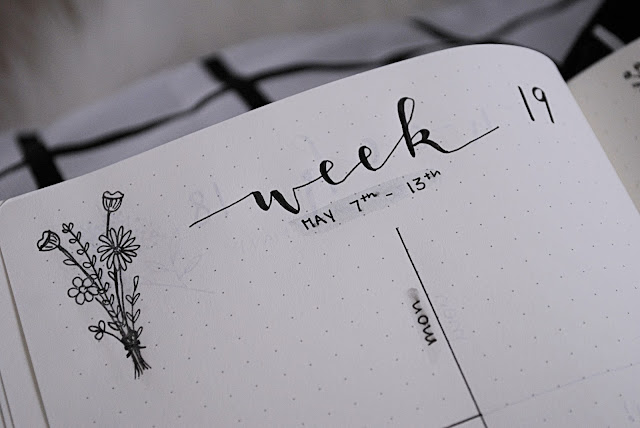 week
19
MAY 7th - 13th
mon